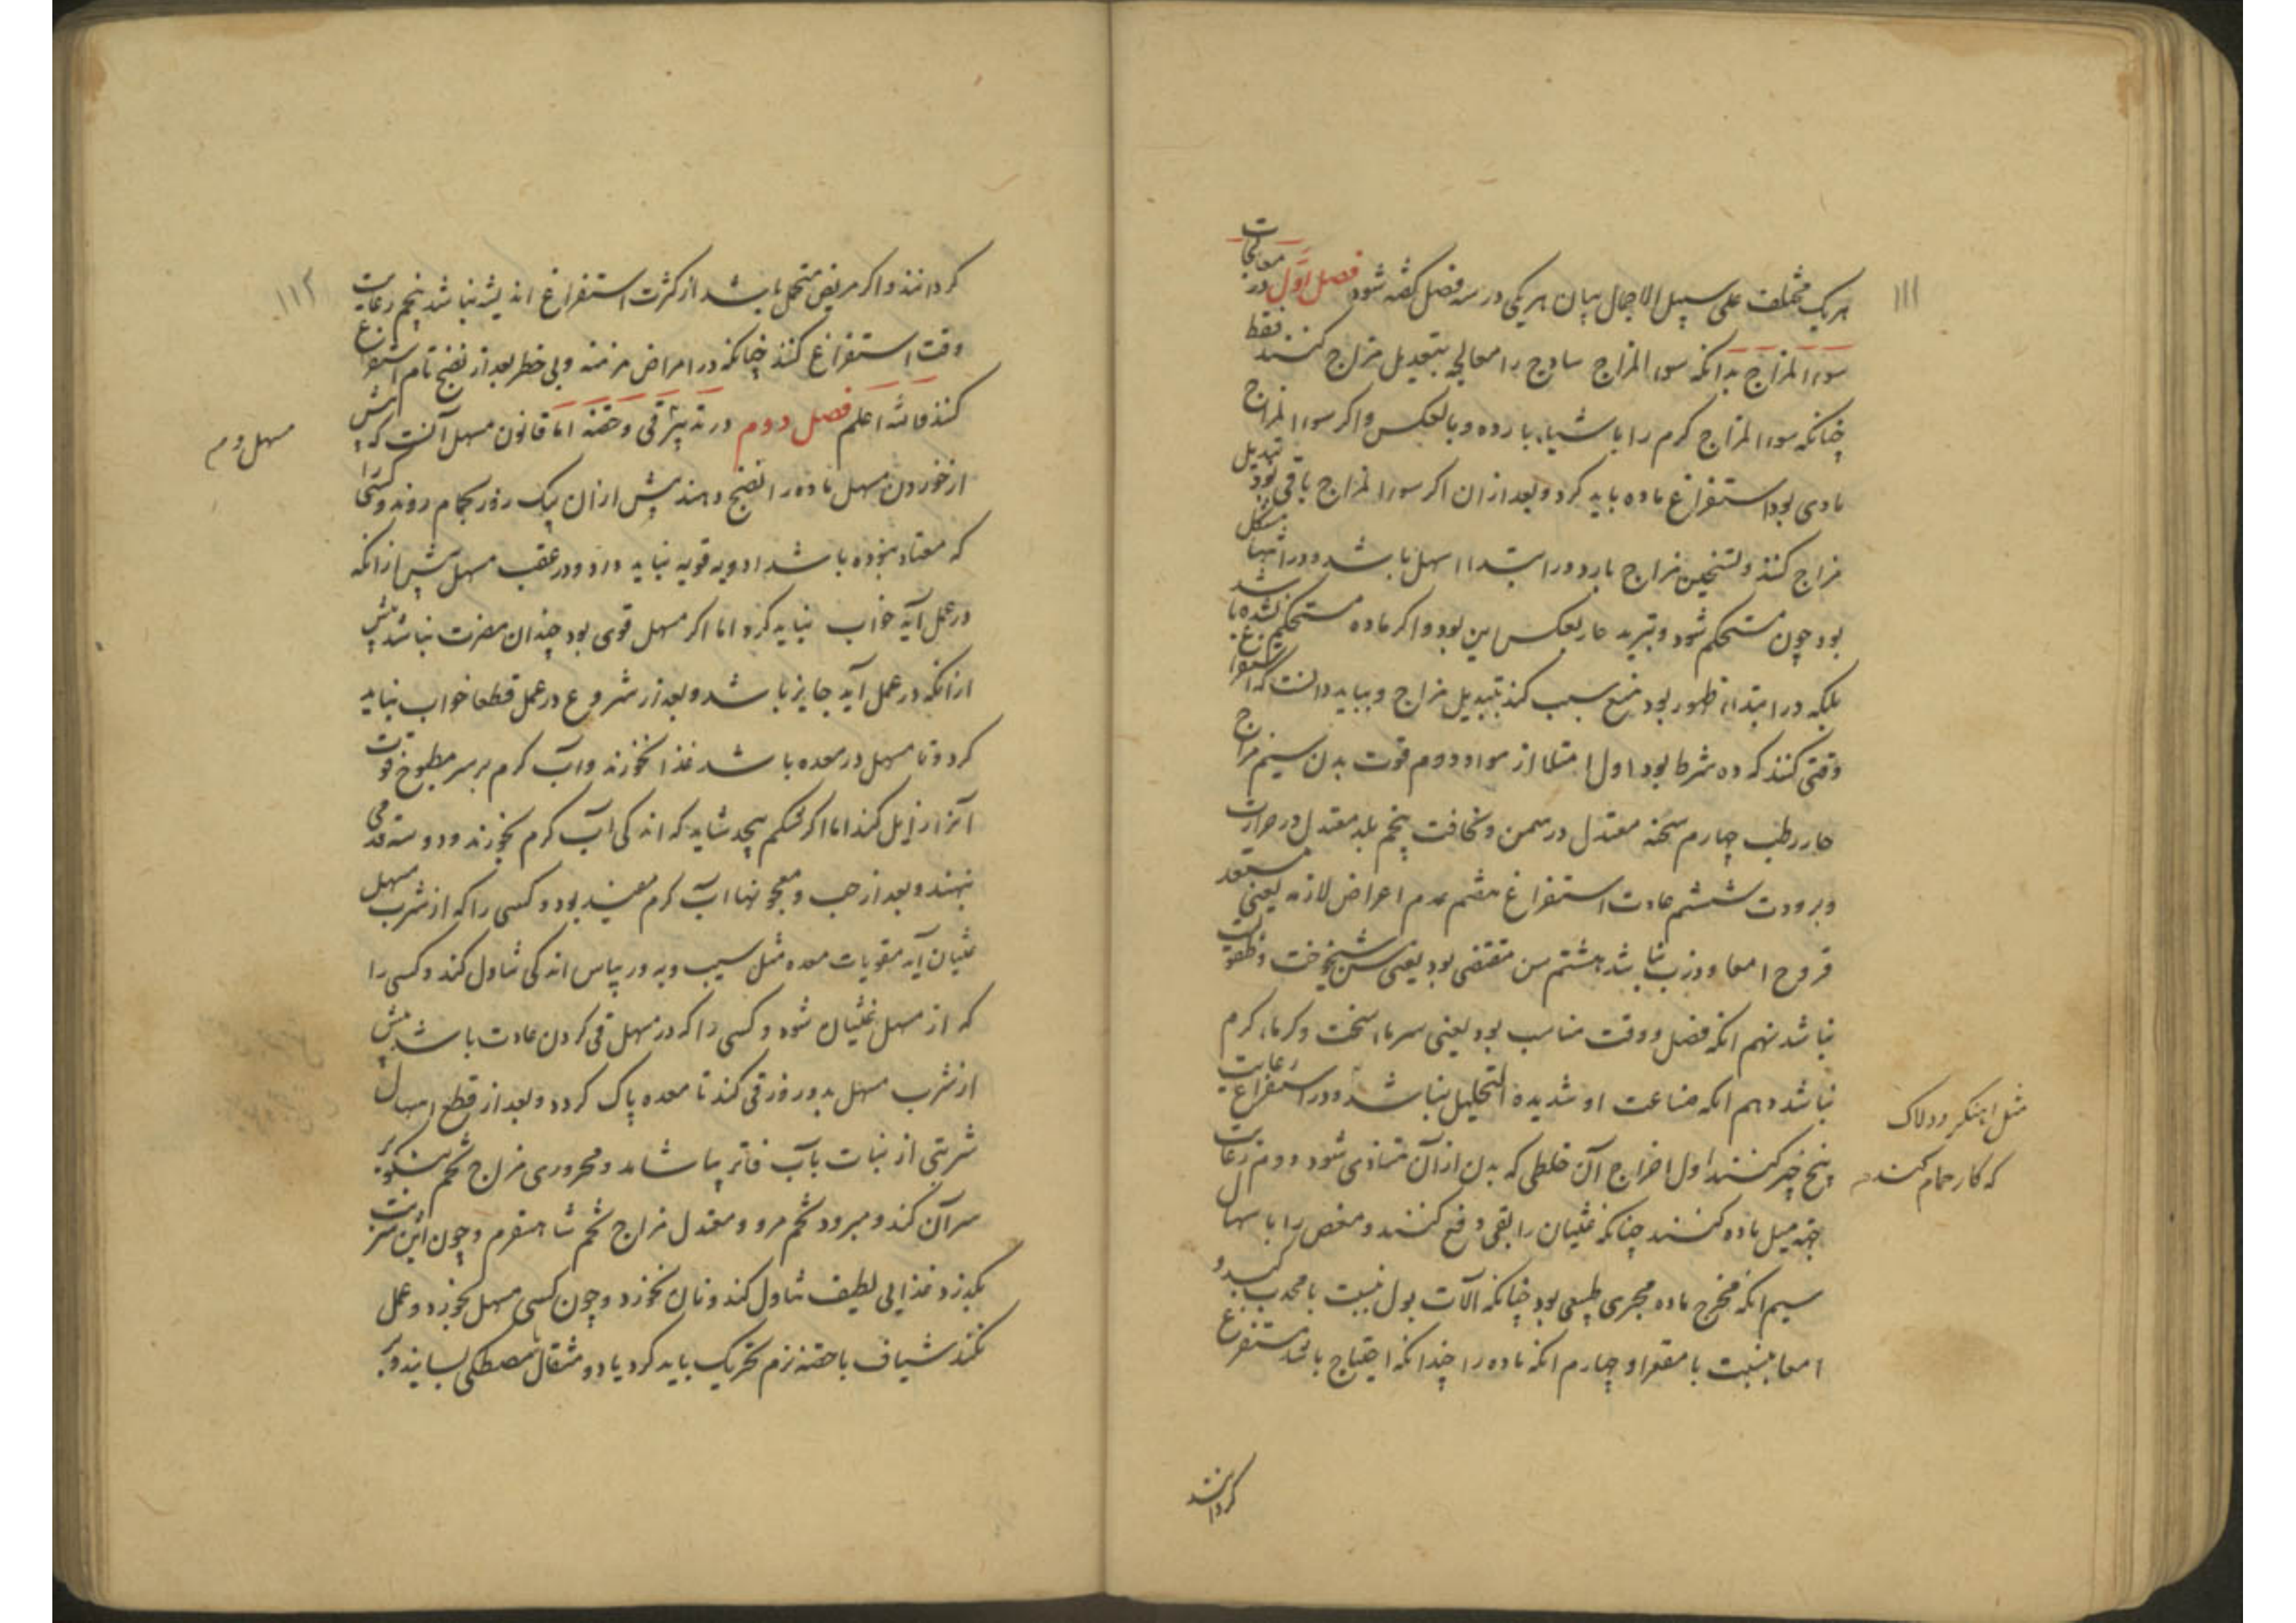 ۱۱۱
هریک مختلف علی سبیل الاجمال بیان هریکی در سه فصل گفته شود فصل اول در معالجات
سوء المزاج بدانکه سوء المزاج ساذج را معالجه بتعدیل مزاج کنند فقط
چنانکه سوء المزاج کرم را باشیاء بارده و بالعکس و اکر سوء المزاج
مادی بود استفراغ ماده باید کرد و بعد ازان اکر سوء المزاج باقی بود تبدیل
مزاج کنند و تسخین مزاج بارد در ابتداء اسهل باشد و در انتها مشکل
بود چون مستحکم شود و تبرید حار بعکس این بود و اکر ماده مستحکم نشده باشد
بلکه در ابتداء ظهور بود منع سبب کند بتبدیل مزاج و بباید دانست که استفراغ
وقتی کنند که ده شرط بود اول امتلا از مواد دوم قوت بدن سیم مزاج
حار رطب چهارم سحنه معتدل در سمن و نحافت پنجم بلد معتدل در حرارت
و برودت ششم عادت استفراغ هفتم عدم اعراض لازمه یعنی مستعد
قروح امعا و ذرب نباشد هشتم سن مقتضی بود یعنی سن شیخوخت و طفولیت
نباشد نهم انکه فصل و وقت مناسب بود یعنی سرماء سخت و کرماء کرم
نباشد دهم انکه صناعت او شدیده التحلیل نباشد و در استفراغ رعایت
پنج چیز کنند اول اخراج آن خلطی که بدن ازان متاذی شود دوم رعایت
جهة میل ماده کنند چنانکه غثیان را بقی دفع کنند و مغص را باسهال
سیم انکه مخرج ماده مجری طبیعی بود چنانکه آلات بول نسبت با محدب کبد و
امعا بنسبت با مقعر او چهارم انکه ماده را چندانکه احتیاج باشد مستفرغ
مثل اهنکر و دلاک
که کار حمام کنند
کردانند
۱۱۲
کردانند و اکر مریض متحمل باشد از کثرت استفراغ اندیشه نباشد پنجم رعایت
وقت استفراغ کنند چنانکه در امراض مزمنه و بی خطر بعد از نضج تام استفراغ
کنند والله اعلم فصل دوم در تدبیر قی و حقنه اما قانون مسهل آنست که پیش
از خوردن مسهل ماده را نضج دهند پیش ازان بیک روز بحمام روند و کسی را
که معتاد نبوده باشد ادویه قویه نباید داد و در عقب مسهل پیش ازانکه
در عمل آید خواب نباید کرد اما اکر مسهل قوی بود چندان مضرت نباشد پیش
ازانکه در عمل آید جایز باشد و بعد از شروع در عمل قطعا خواب نباید
کرد و تا مسهل در معده باشد غذا نخورند و آب کرم بر سر مطبوخ قوت
آنرا زایل کند اما اکر شکم پیچد شاید که اندکی آب کرم بخورند و دو سه قدمی
بنهند و بعد از حب و معجونها اب کرم مفید بود و کسی را که از شرب مسهل
غثیان آید مقویات معده مثل سیب و به و ریباس اندکی تناول کند و کسی را
که از مسهل غثیان شود و کسی را که در مسهل قی کردن عادت باشد پیش
از شرب مسهل بدو روز قی کند تا معده پاک کردد و بعد از قطع اسهال
شربتی از نبات بآب فاتر بیاشامد و محروری مزاج تخم اسپغول بر
سر آن کند و مبرود تخم مرو و معتدل مزاج تخم شاهسفرم و چون این شربت
بکذرد غذایی لطیف تناول کند و نان نخورد و چون کسی مسهل بخورد و عمل
نکند شیاف یا حقنه نرم تحریک باید کرد یا دو مثقال مصطکی بسایند و بآب
مسهل دوم